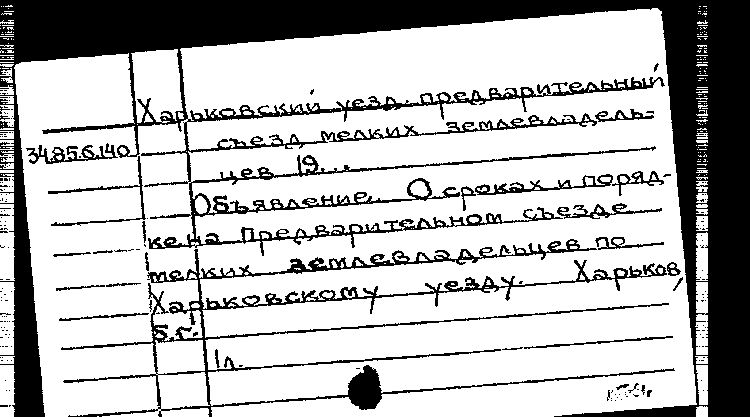 Харьковский уезд. предварительный
съезд мелких землевладель-
34.85.6.140
цев 19...
Объявление. О сроках и поряд-
ке на предварительном съезде
мелких землевладельцев по
Харьковскому уезду. Харьков,
б.г.
1л.